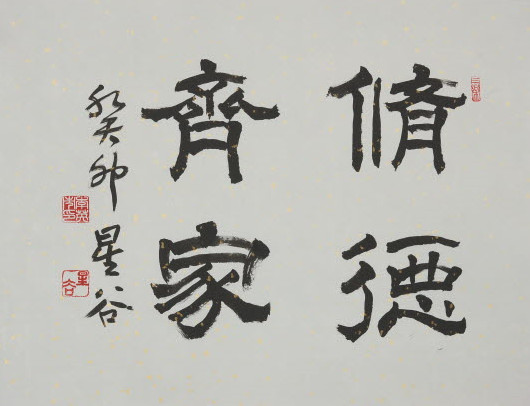 脩德
齊家
癸卯 星谷
星谷